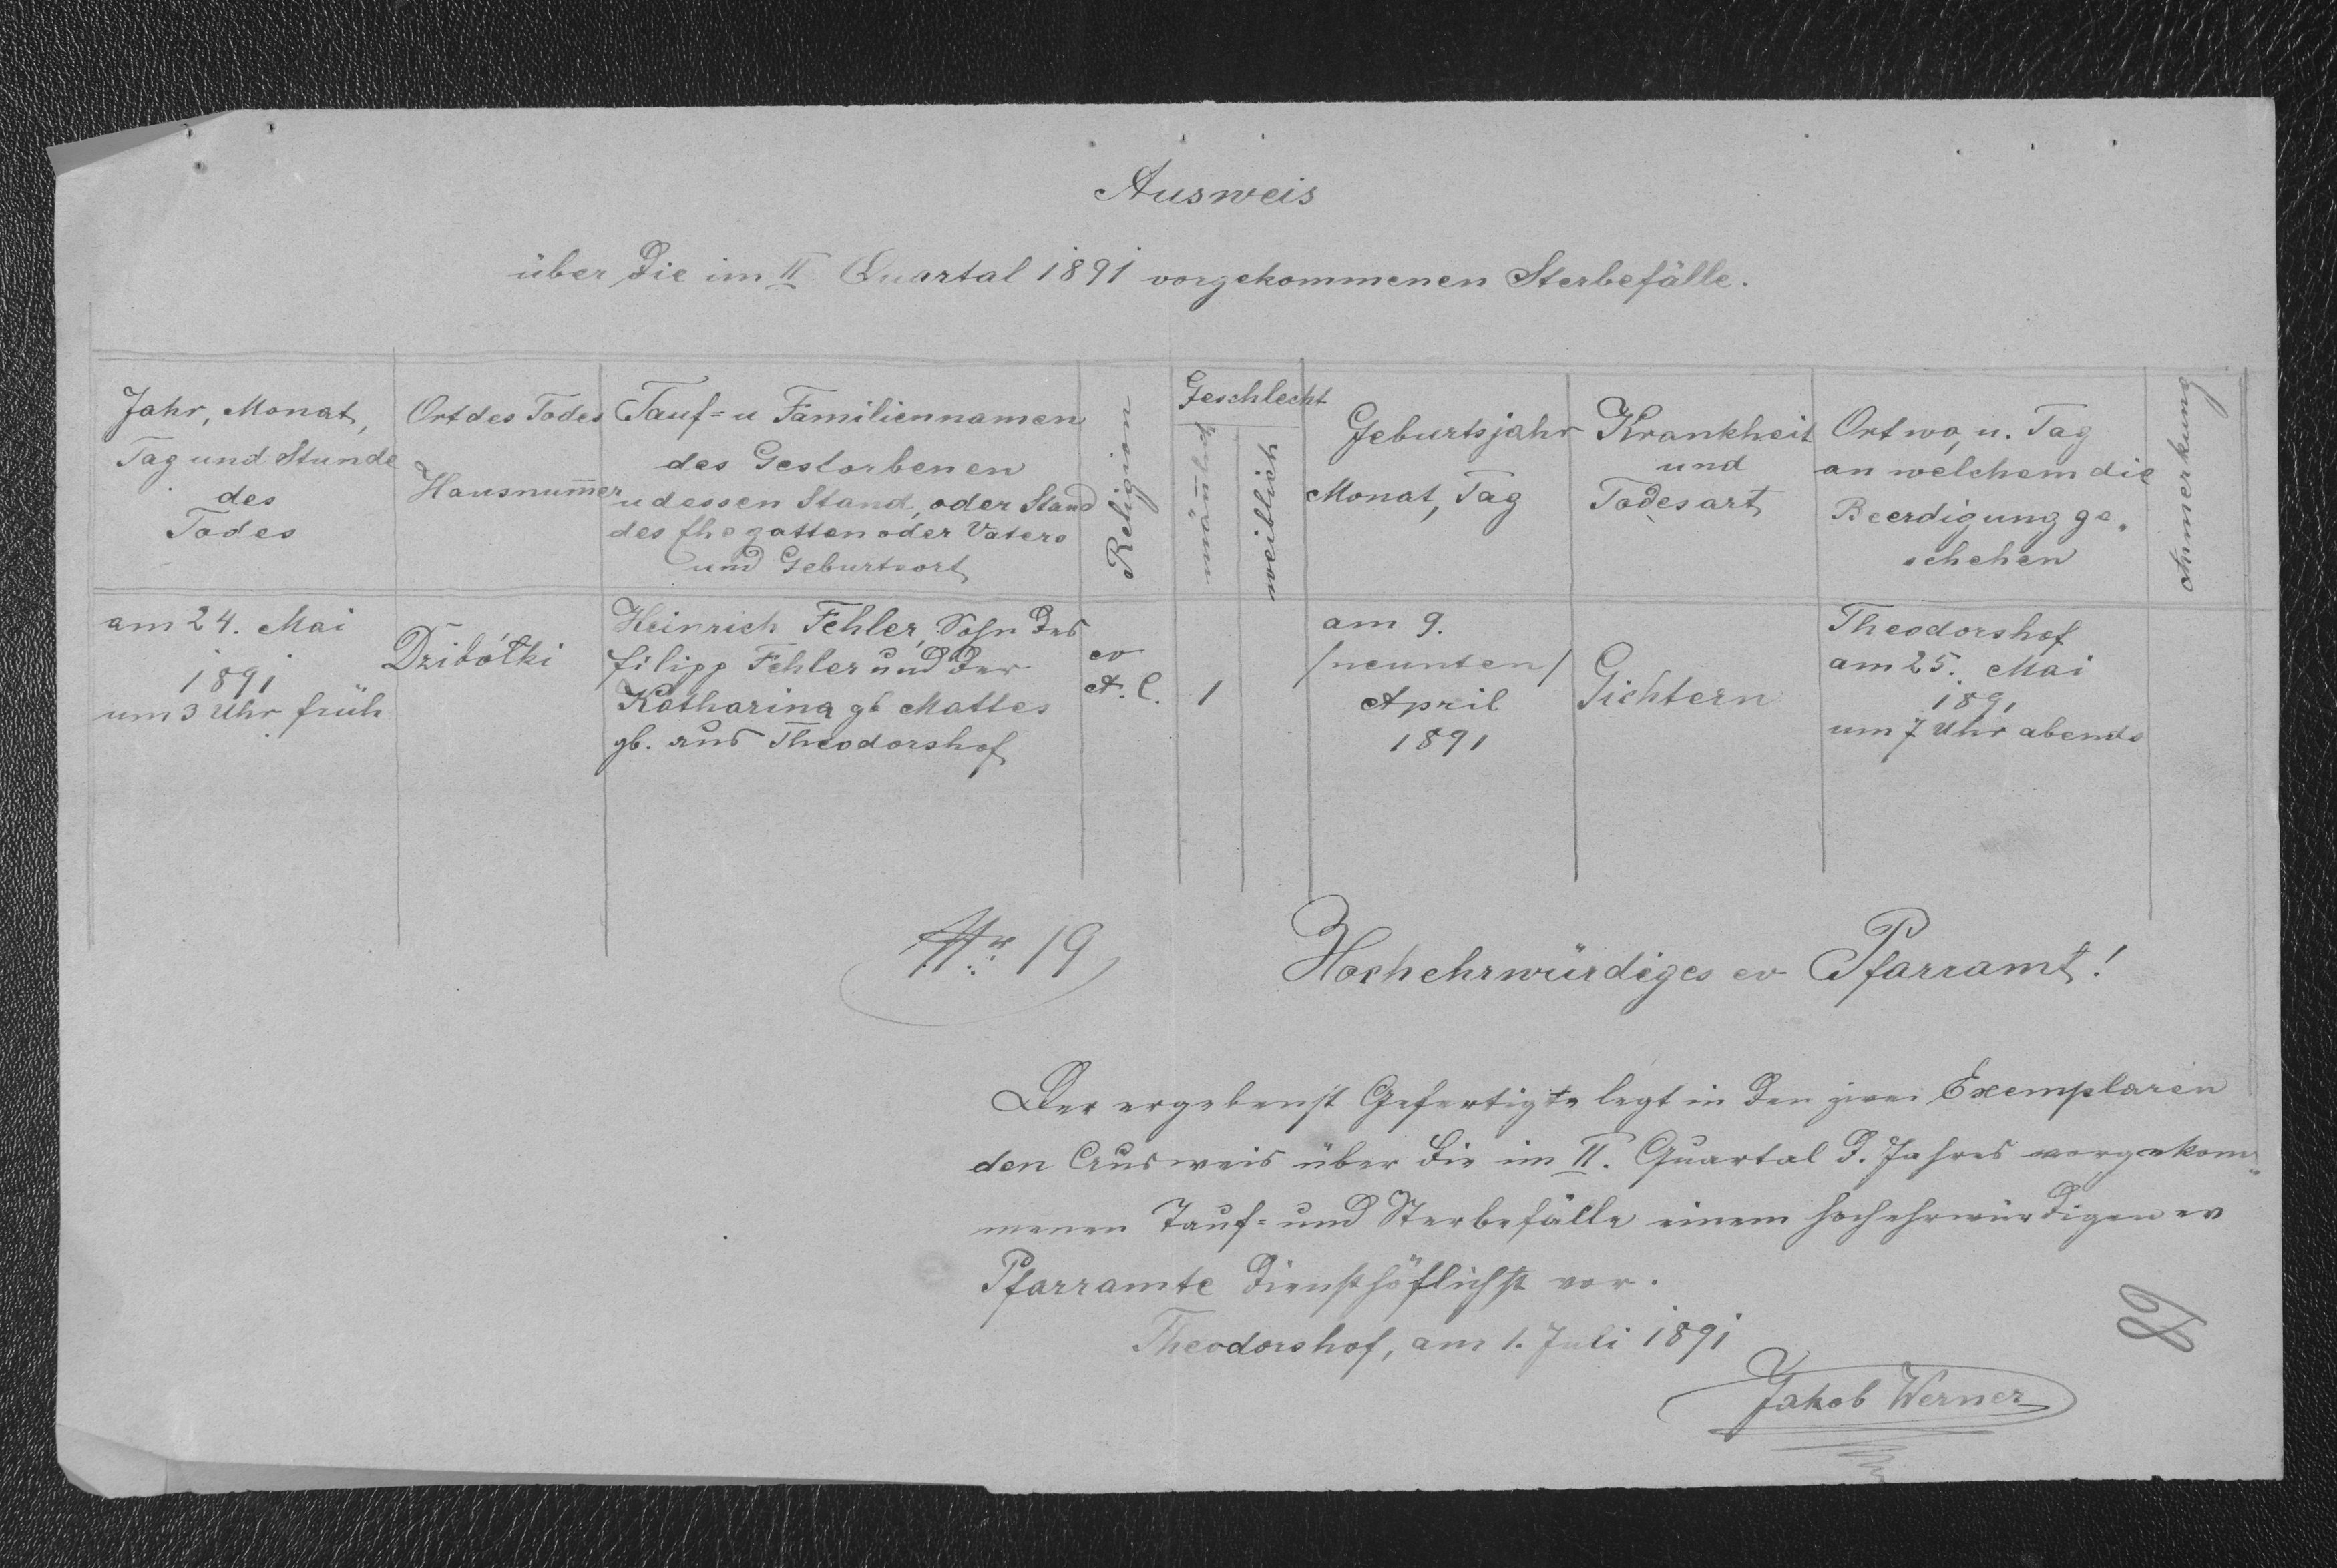 Ausweis
über die im II. Quartal 1891 vorgekommenen Sterbefälle.
Jahr, Monat,
Tag und Stunde
des
Todes
Ort des Todes
Hausnum̄er
Tauf= u Familiennamen
des Gestorbenen
u dessen Stand, oder Stand
des Ehegatten oder Vaters
und Geburtsort
Religion
Geschlecht
männlich
weiblich
Geburtsjahr
Monat, Tag
Krankheit
und
Todesart
Ort wo, u. Tag
an welchem die
Beerdigung ge„
schehen
Anmerkung
am 24. Mai
1891
um 3 Uhr früh
Dzibółki
Heinrich Fehler, Sohn des
Filipp Fehler und der
Katharina gb Mattes
gb. aus Theodorshof
ev
A. C.
1
am 9.
/neunten/
April
1891
Gichtern
Theodorshof
am 25. Mai
1891
um 7 Uhr abends
Nr. 19
Hochehrwürdiges ev Pfarramt!
Der ergebenst Gefertigte legt in den zwei Exemplaren
den Ausweis über die im II. Quartal d. Jahres vorgekom„
menen Tauf= und Sterbefälle einem hochehrwürdigen ev
Pfarramte diensthöflichst vor.
Theodorshof, am 1. Juli 1891
Jakob Werner